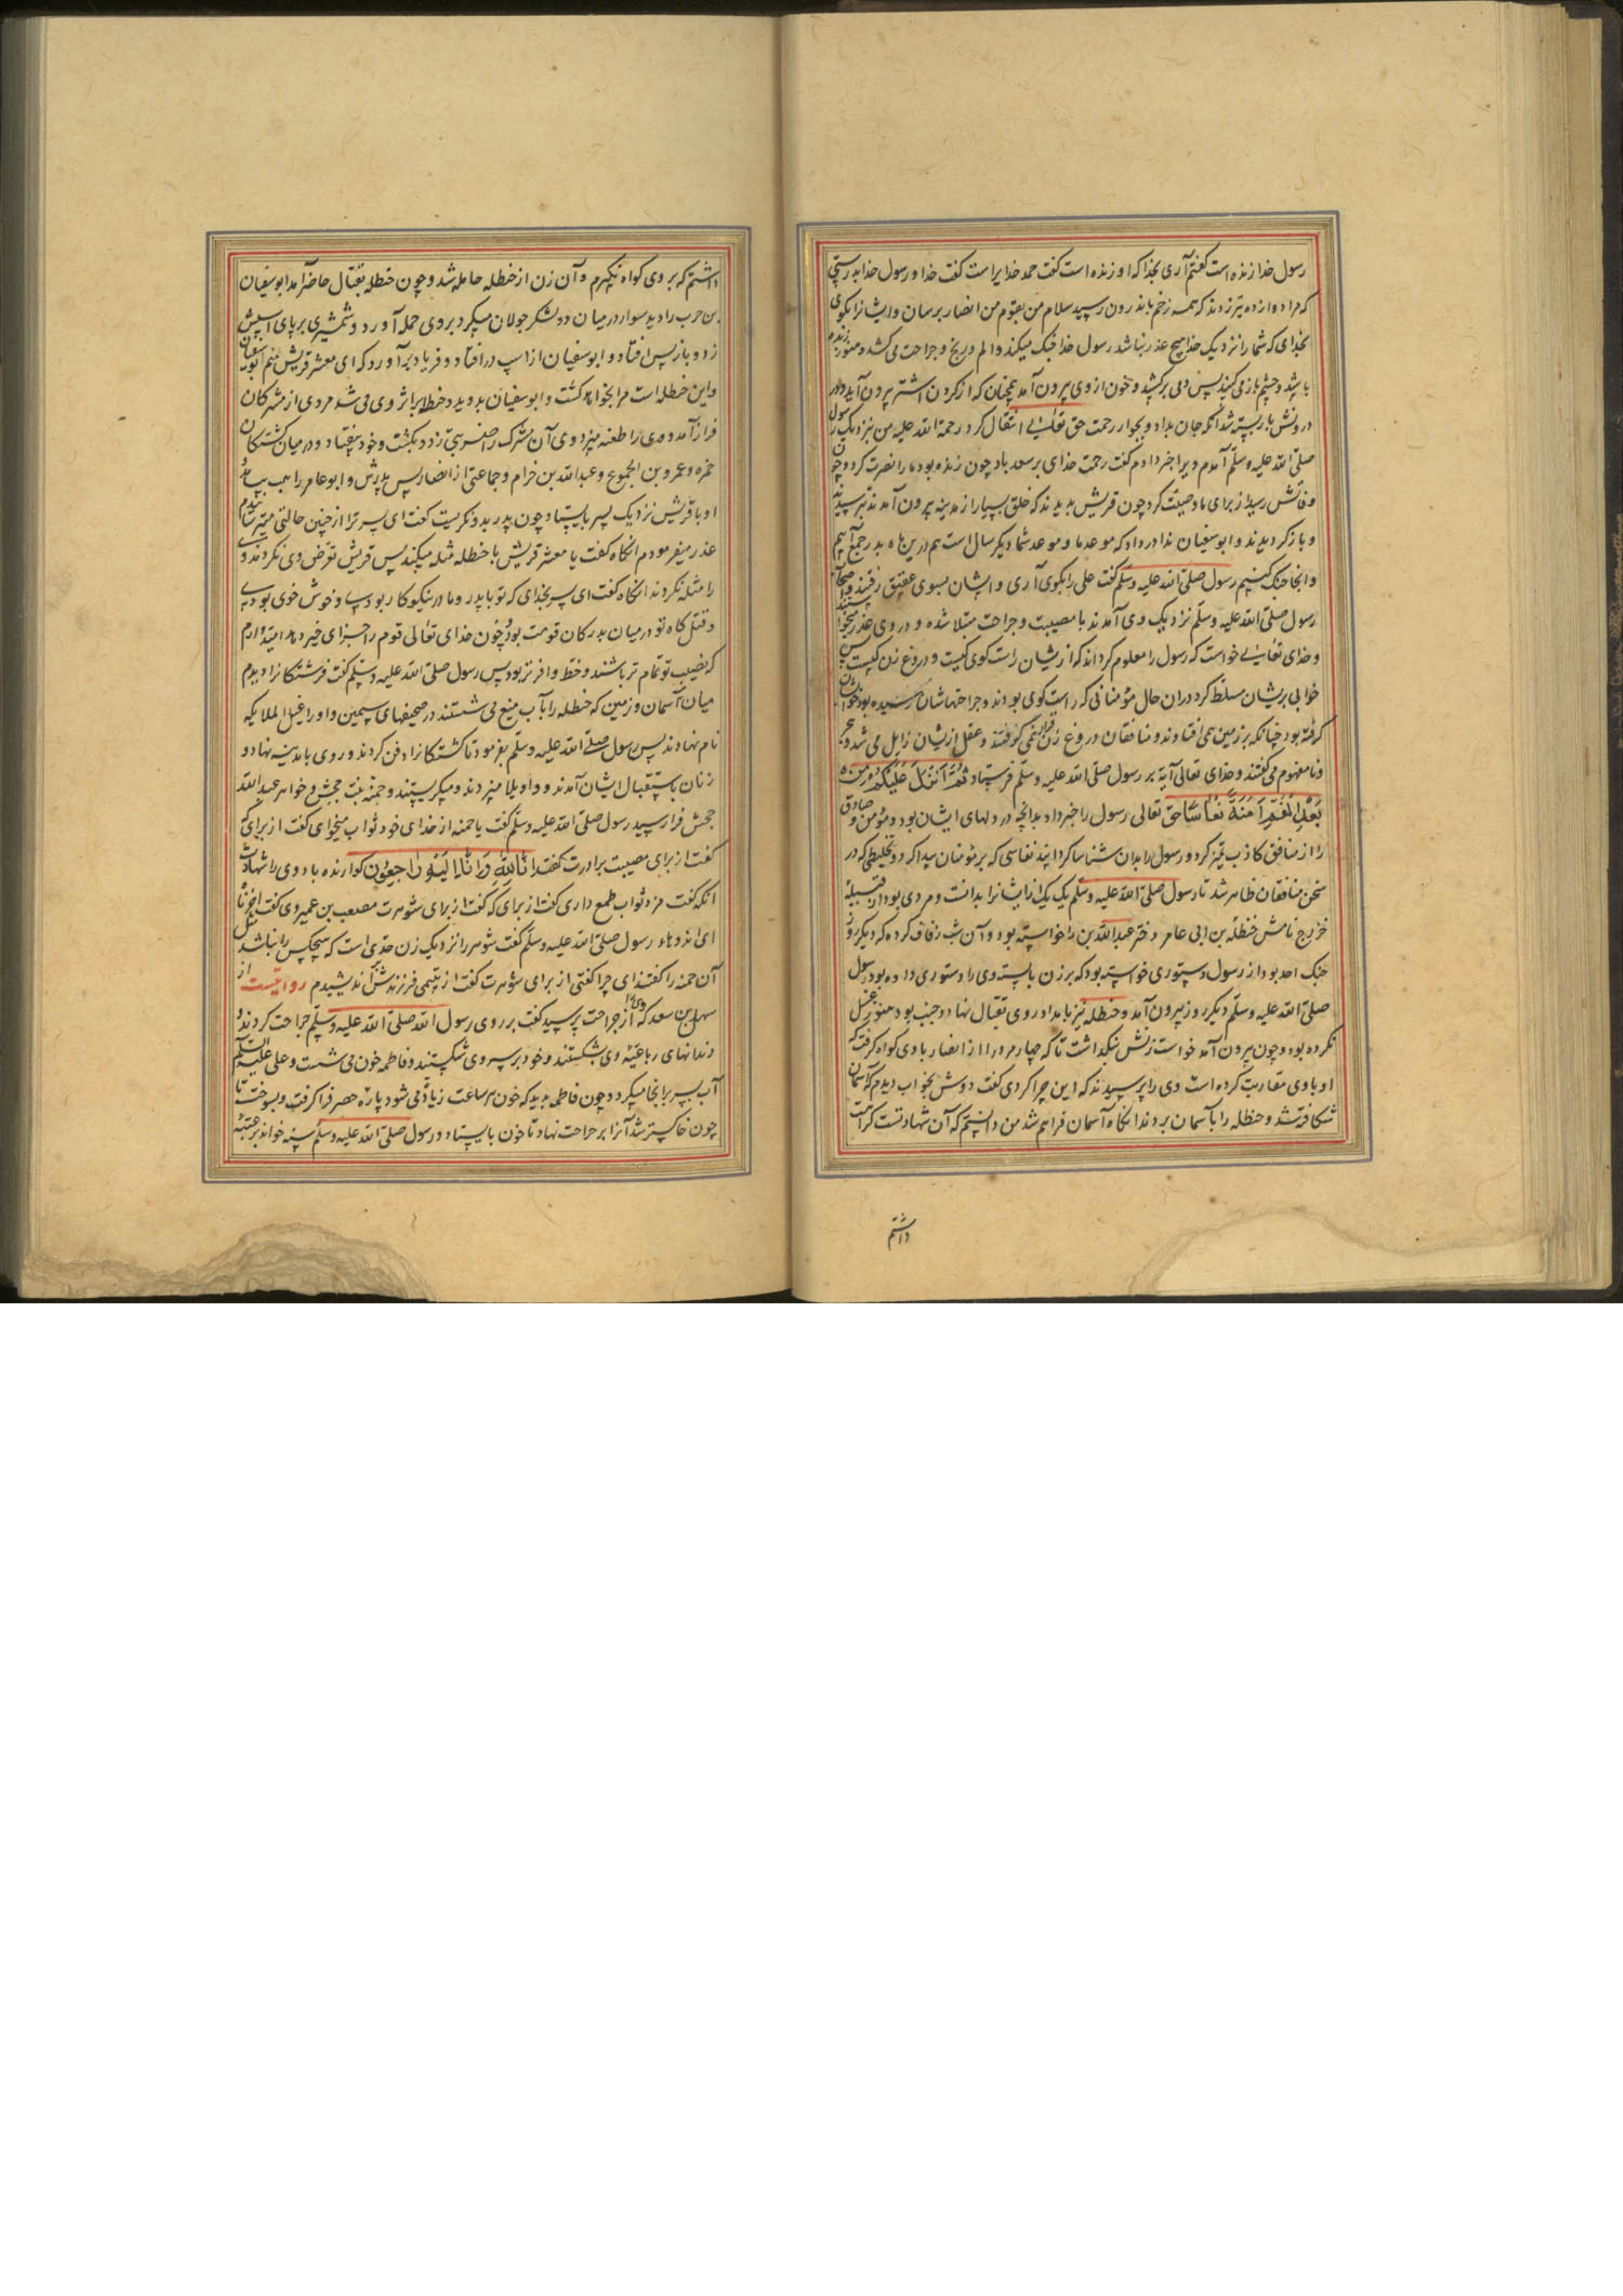 رسول خدا زنده است گفتم آری بخدا که او زنده است گفت حمد خدایراست گفت خدا و رسول خدا بدرستی
که مرا دوازده تیر زدند که همه زخم باندرون رسید سلام من بقوم من انصار برسان و ایشانرا بکوی
بخدای که شما را نزدیک خدا هیچ عذر نباشد رسول خدا جنک میکند و الم و رنج و جراحت می کشد و هنوز
باشد و چشم باز می کنید پس دمی برکشید و خون از وی بیرون آمد همچنان که از کردن اشتر بیرون آید و در
درونش باز بسته شد آنکه جان بداد و بجوار رحمت حق تعالی انتقال کرد رحمة الله علیه من بنزدیک رسول
صلی الله علیه وسلم آمدم و ویرا خبر دادم گفت رحمت خدای بر سعد باد چون زنده بود ما را نصرت کرد و چون
وفاتش رسید از برای ما وصیت کرد چون قریش بدیدند که خلق بسیار از مدینه بیرون آمدند بترسیدند
و باز کردیدند و ابوسفیان ندا در داد که موعد ما و موعد شما دیکر سال است هم درین ماه بدر جمع آییم
و آنجا جنک کنیم رسول صلی الله علیه وسلم گفت علی را بکوی آری و ایشان بسوی عقیق رفتند و اصحاب
رسول صلی الله علیه وسلم نزدیک وی آمدند با مصیبت و جراحت مبتلا شده و در وی عذر میخواستند
و خدای تعالی خواست که رسول را معلوم کرداند که از یشان راست کوی کیست و دروغ زن کیست پس
خوابی بریشان مسلط کرد دران حال مؤمنانی که راست کوی بودند و جراحتهاشان رسیده بود خوابشان
کرفته بود چنانکه بر زمین می افتادند و منافقان دروغ زن را نمی کرفتند و عقل ازیشان زایل می شد و
و نامفهوم می گفتند و خدای تعالی آیة بر رسول صلی الله علیه وسلم فرستاد ثُمَّ أَنْزَلَ عَلَيْكُمْ مِنْ
بَعْدِ الْغَمِّ أَمَنَةً نُعَاسًا حق تعالی رسول را خبر داد بدانچه در دلهای ایشان بود و مؤمن صادق
را از منافق کاذب تمیز کرد و رسول را بدان شناسا کردانید نعاسی که بر مؤمنان پیدا کرد و تخلیطی که در
سخن منافقان ظاهر شد تا رسول صلی الله علیه وسلم یک یک از ایشانرا بدانست و مردی بود از قبیلهٔ
خزرج نامش حنظله بن ابی عامر دختر عبدالله بن را خواسته بود و آن شب زفاف کرده که دیکر روز
جنک احد بود از رسول دستوری خواسته بود که بر زن باسته وی را دستوری داده بود رسول
صلی الله علیه وسلم دیکر روز بیرون آمد و حنظله نیز بامداد روی بقتال نهاد و جنب بود هنوز غسل
نکرده بود و چون بیرون آمد خواست زنش نکذاشت تا که چهار مرد را از انصار با وی کواه کرفت که
او با وی مقاربت کرده است وی را پرسیدند که این چرا کردی گفت دوش بخواب دیدم که آسمان
شکافته شد و حنظله را بآسمان بردند آنکاه آسمان فراهم شد من دانستم که آن شهادتست کراهت
داشتم
داشتم که بر وی کواه نکیرم و آن زن از حنظله حامله شد و چون حنظله بقتال حاضر آمد ابوسفیان
بن حرب را دید سوار در میان دو لشکر جولان میکرد بر وی حمله آورد و شمشیری بر پای اسپش
زد و باز پس افتاد و ابوسفیان از اسپ در افتاد و فریاد برآورد که ای معشر قریش منم ابوسفیان
و این حنظله است مرا بخواهد کشت و ابوسفیان بدوید و حنظله بر اثر وی می شد مردی از مشرکان
فراز آمد و وی را طعنه بزد وی آن مشرک را ضربتی زد و بکشت و خود بیفتاد و در میان کشتکان
حمزه و عمرو بن الجموح و عبدالله بن حزام و جماعتی از انصار پس پدرش و ابوعامر راهب بیامد
او با قریش نزدیک پسر بایستاد چون پدر بدو نکریست گفت ای پسر ترا از چنین حالتی
عذر میفرمودم آنکاه گفت یا معشر قریش با حنظله مثله میکنید پس قریش تعرض وی نکردند و وی
را مثله نکردند آنکاه گفت ای پسر بخدای که تو با پدر و مادر نیکوکار بودی و خوش خوی بودی
و قتل کاه تو در میان بزرکان قومت بود چون خدای تعالی قوم را جزای خیر دهد امیدوارم
که نصیب تو تمام تر باشند و حظ وافرتر بود پس رسول صلی الله علیه وسلم گفت فرشتکانرا دیدم
میان آسمان و زمین که حنظله را بآب میغ می شستند در صحیفهای سیمین و او را غسیل الملایکه
نام نهادند پس رسول صلی الله علیه وسلم بفرمود تا کشتکانرا دفن کردند و روی بامدینه نهاد و
زنان باستقبال ایشان آمدند و واویلا میزدند و میکریستند و حمنه بنت جحش و خواهر عبدالله
جحش فرا رسید رسول صلی الله علیه وسلم گفت یا حمنه از خدای خود ثواب میخوای گفت از برای که
گفت از برای مصیبت برادرت گفت اِنَّا لِلّٰهِ وَاِنَّا اِلَيْهِ رَاجِعُونَ کوارنده باد وی را شهادت
آنکه گفت مزد ثواب طمع داری گفت از برای که گفت از برای شوهرت مصعب بن عمیر وی گفت
ای اندوها رسول صلی الله علیه وسلم گفت شوهر را نزدیک زن حدی است که هیچکس را نباشد
آن حمنه را گفتند ای چرا گفتی از برای شوهرت گفت از یتیمی فرزندش اندیشیدم روایتست از
سهل بن سعد که وی را از جراحت پرسید گفت بر روی رسول الله صلی الله علیه وسلم جراحت کردند و
دندانهای رباعیهٔ وی بشکستند و خود بر سر وی شکستند و فاطمه خون می شست و علی علیه السلام
آب بسپر بر آنجا میکرد و چون فاطمه بدید که خون هر ساعت زیاده می شود پارهٔ حصر فرا کرفت و بسوخت تا
چون خاکستر شد آنرا بر جراحت نهاد تا خون بایستاد و رسول صلی الله علیه وسلم